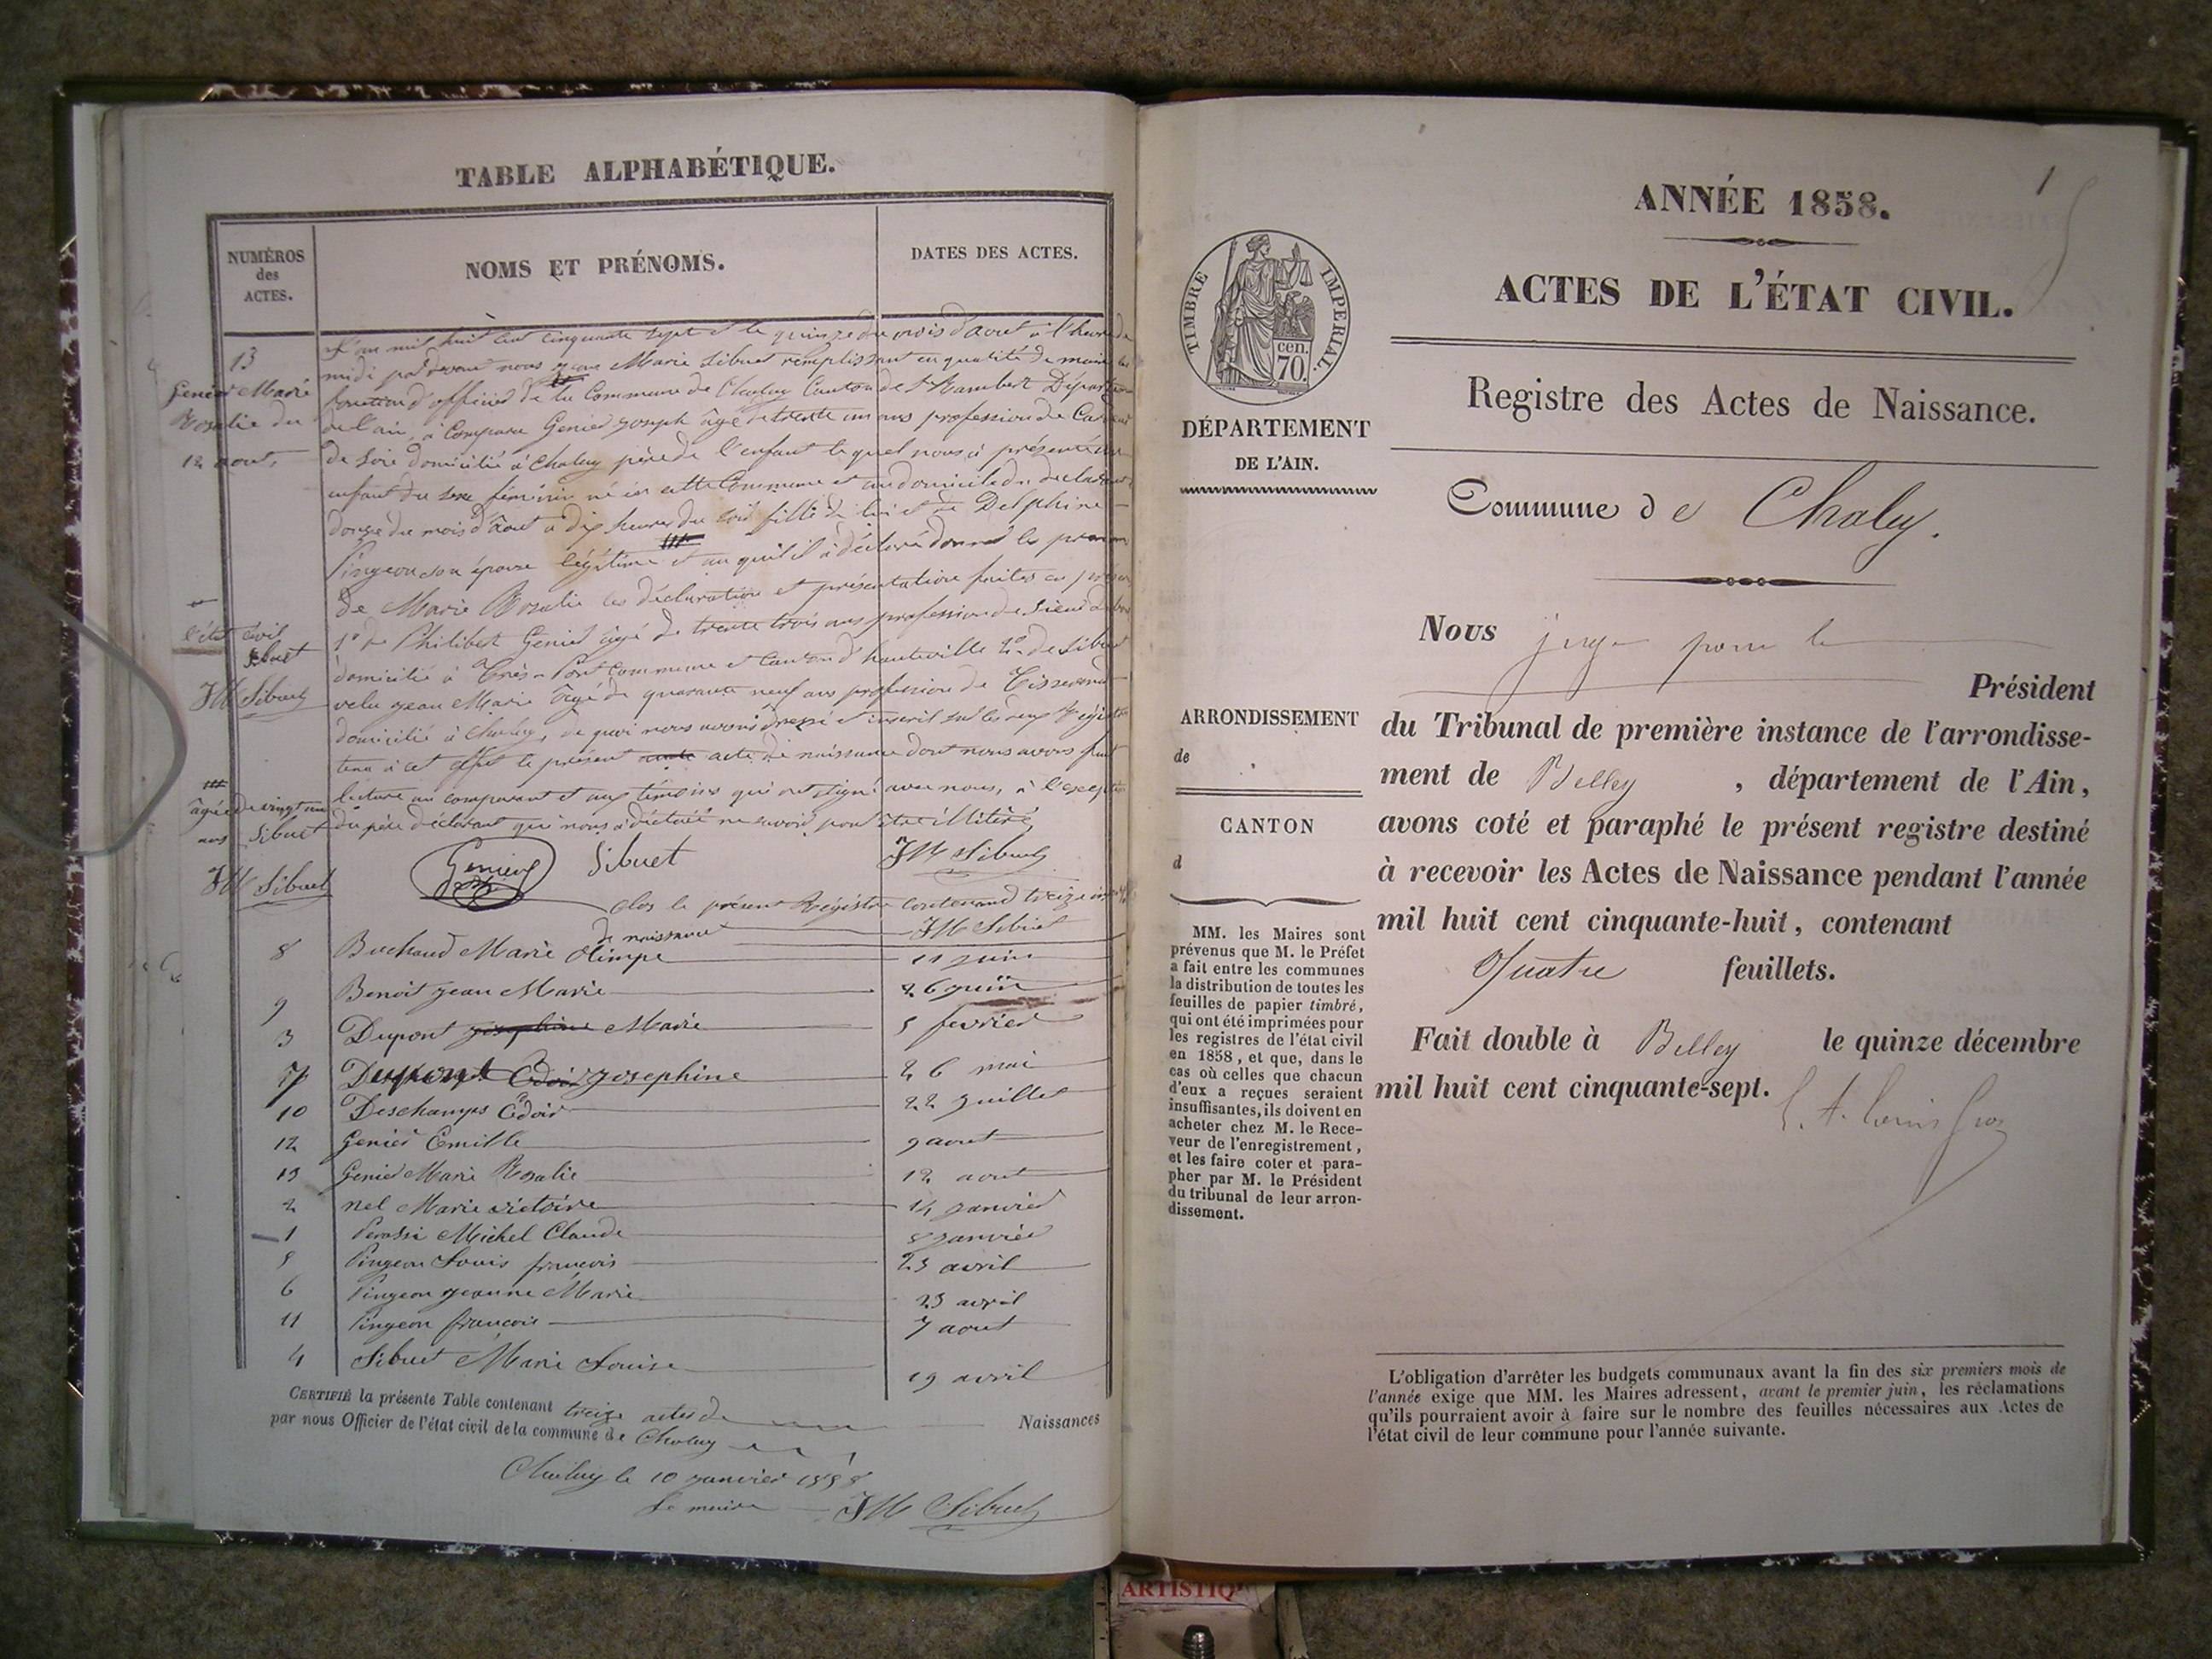 TABLE ALPHABÉTIQUE.
NUMÉROS
des
ACTES.
NOMS ET PRÉNOMS.
DATES DES ACTES.
13
Genier Marie
Rosalie du
12 aout
L'an mil huit cent cinquante sept et le quinze du mois d'aout à l'heure de
midi par devant nous Marie Sibuet remplissant en qualité de maire les
fonction d'officier de la Commune de Chaley Canton de St Rambert Départ
de l'ain, à Comparu Genier joseph âgé de trente un ans profession de
de soie domicilié à Chaley père de l'enfant lequel nous à présenté un
enfant du sexe féminin né en cette Commune et au domicile du declarant
douze du mois d'aout a dix heures du soir fille de lui et de Delphine
Pingeon son épouse légitime et au quil il à déclaré donné les prenom
de Marie Rosalie les déclaration et présentation faites en
1° de Philibert Genier âgé de trente trois ans profession de
domicilié à Commune et Canton d'hauteville 2° de Sibuet
jean Marie âgé de quarante neuf ans profession de Tisserand
domicilié à Chaley, de quoi nous avons dressé et inscrit sur les deux
tenu à cet effet le présent acte de naissance dont nous avons fait
lecture au comparant et aux témoins qui ont signé avec nous, à l'
du père déclarant qui nous à déclaré ne savoir pour être illitéré
l'état civil
Sibuet
JM Sibuet
âgée de vingt un
ans Sibuet
JM Sibuet
Genier Sibuet JM Sibuet
clos le présent Régistre contenand treize
de naissance JM Sibuet
8 Buchaud Marie Olimpe 11 juin
9 Benoit jean Marie 26 juin
3 Dupont josephine Marie 5 fevrier
7 Dupont Edoir josephine 26 mai
10 Deschamps Edoir 22 juillet
12 Genier Emille 9 aout
13 Genier Marie Rosalie 12 aout
2 nel Marie victoire 14 janvier
1 Michel Claude 8 janvier
5 Pingeon Louis francois 23 avril
6 Pingeon jeanne Marie 23 avril
11 Pingeon francois 7 aout
4 Sibuet Marie Louise 19 avril
CERTIFIÉ la présente Table contenant treize actes de Naissances
par nous Officier de l'état civil de la commune de Chaley
Chaley le 10 janvier 1858
Le maire JM Sibuet
1
ANNÉE 1858.
ACTES DE L'ÉTAT CIVIL.
Registre des Actes de Naissance.
TIMBRE IMPERIAL.
cen.
70.
DÉPARTEMENT
DE L'AIN.
Commune de Chaley.
Nous juge pour le
Président
du Tribunal de première instance de l'arrondisse-
ment de Belley , département de l'Ain,
avons coté et paraphé le présent registre destiné
à recevoir les Actes de Naissance pendant l'année
mil huit cent cinquante-huit, contenant
Quatre feuillets.
Fait double à Belley le quinze décembre
mil huit cent cinquante-sept.
ARRONDISSEMENT
de
CANTON
d
MM. les Maires sont
prévenus que M. le Préfet
a fait entre les communes
la distribution de toutes les
feuilles de papier timbré,
qui ont été imprimées pour
les registres de l'état civil
en 1858, et que, dans le
cas où celles que chacun
d'eux a reçues seraient
insuffisantes, ils doivent en
acheter chez M. le Rece-
veur de l'enregistrement,
et les faire coter et para-
pher par M. le Président
du tribunal de leur arron-
dissement.
L'obligation d'arrêter les budgets communaux avant la fin des six premiers mois de
l'année exige que MM. les Maires adressent, avant le premier juin, les réclamations
qu'ils pourraient avoir à faire sur le nombre des feuilles nécessaires aux Actes de
l'état civil de leur commune pour l'année suivante.
ARTISTIQ